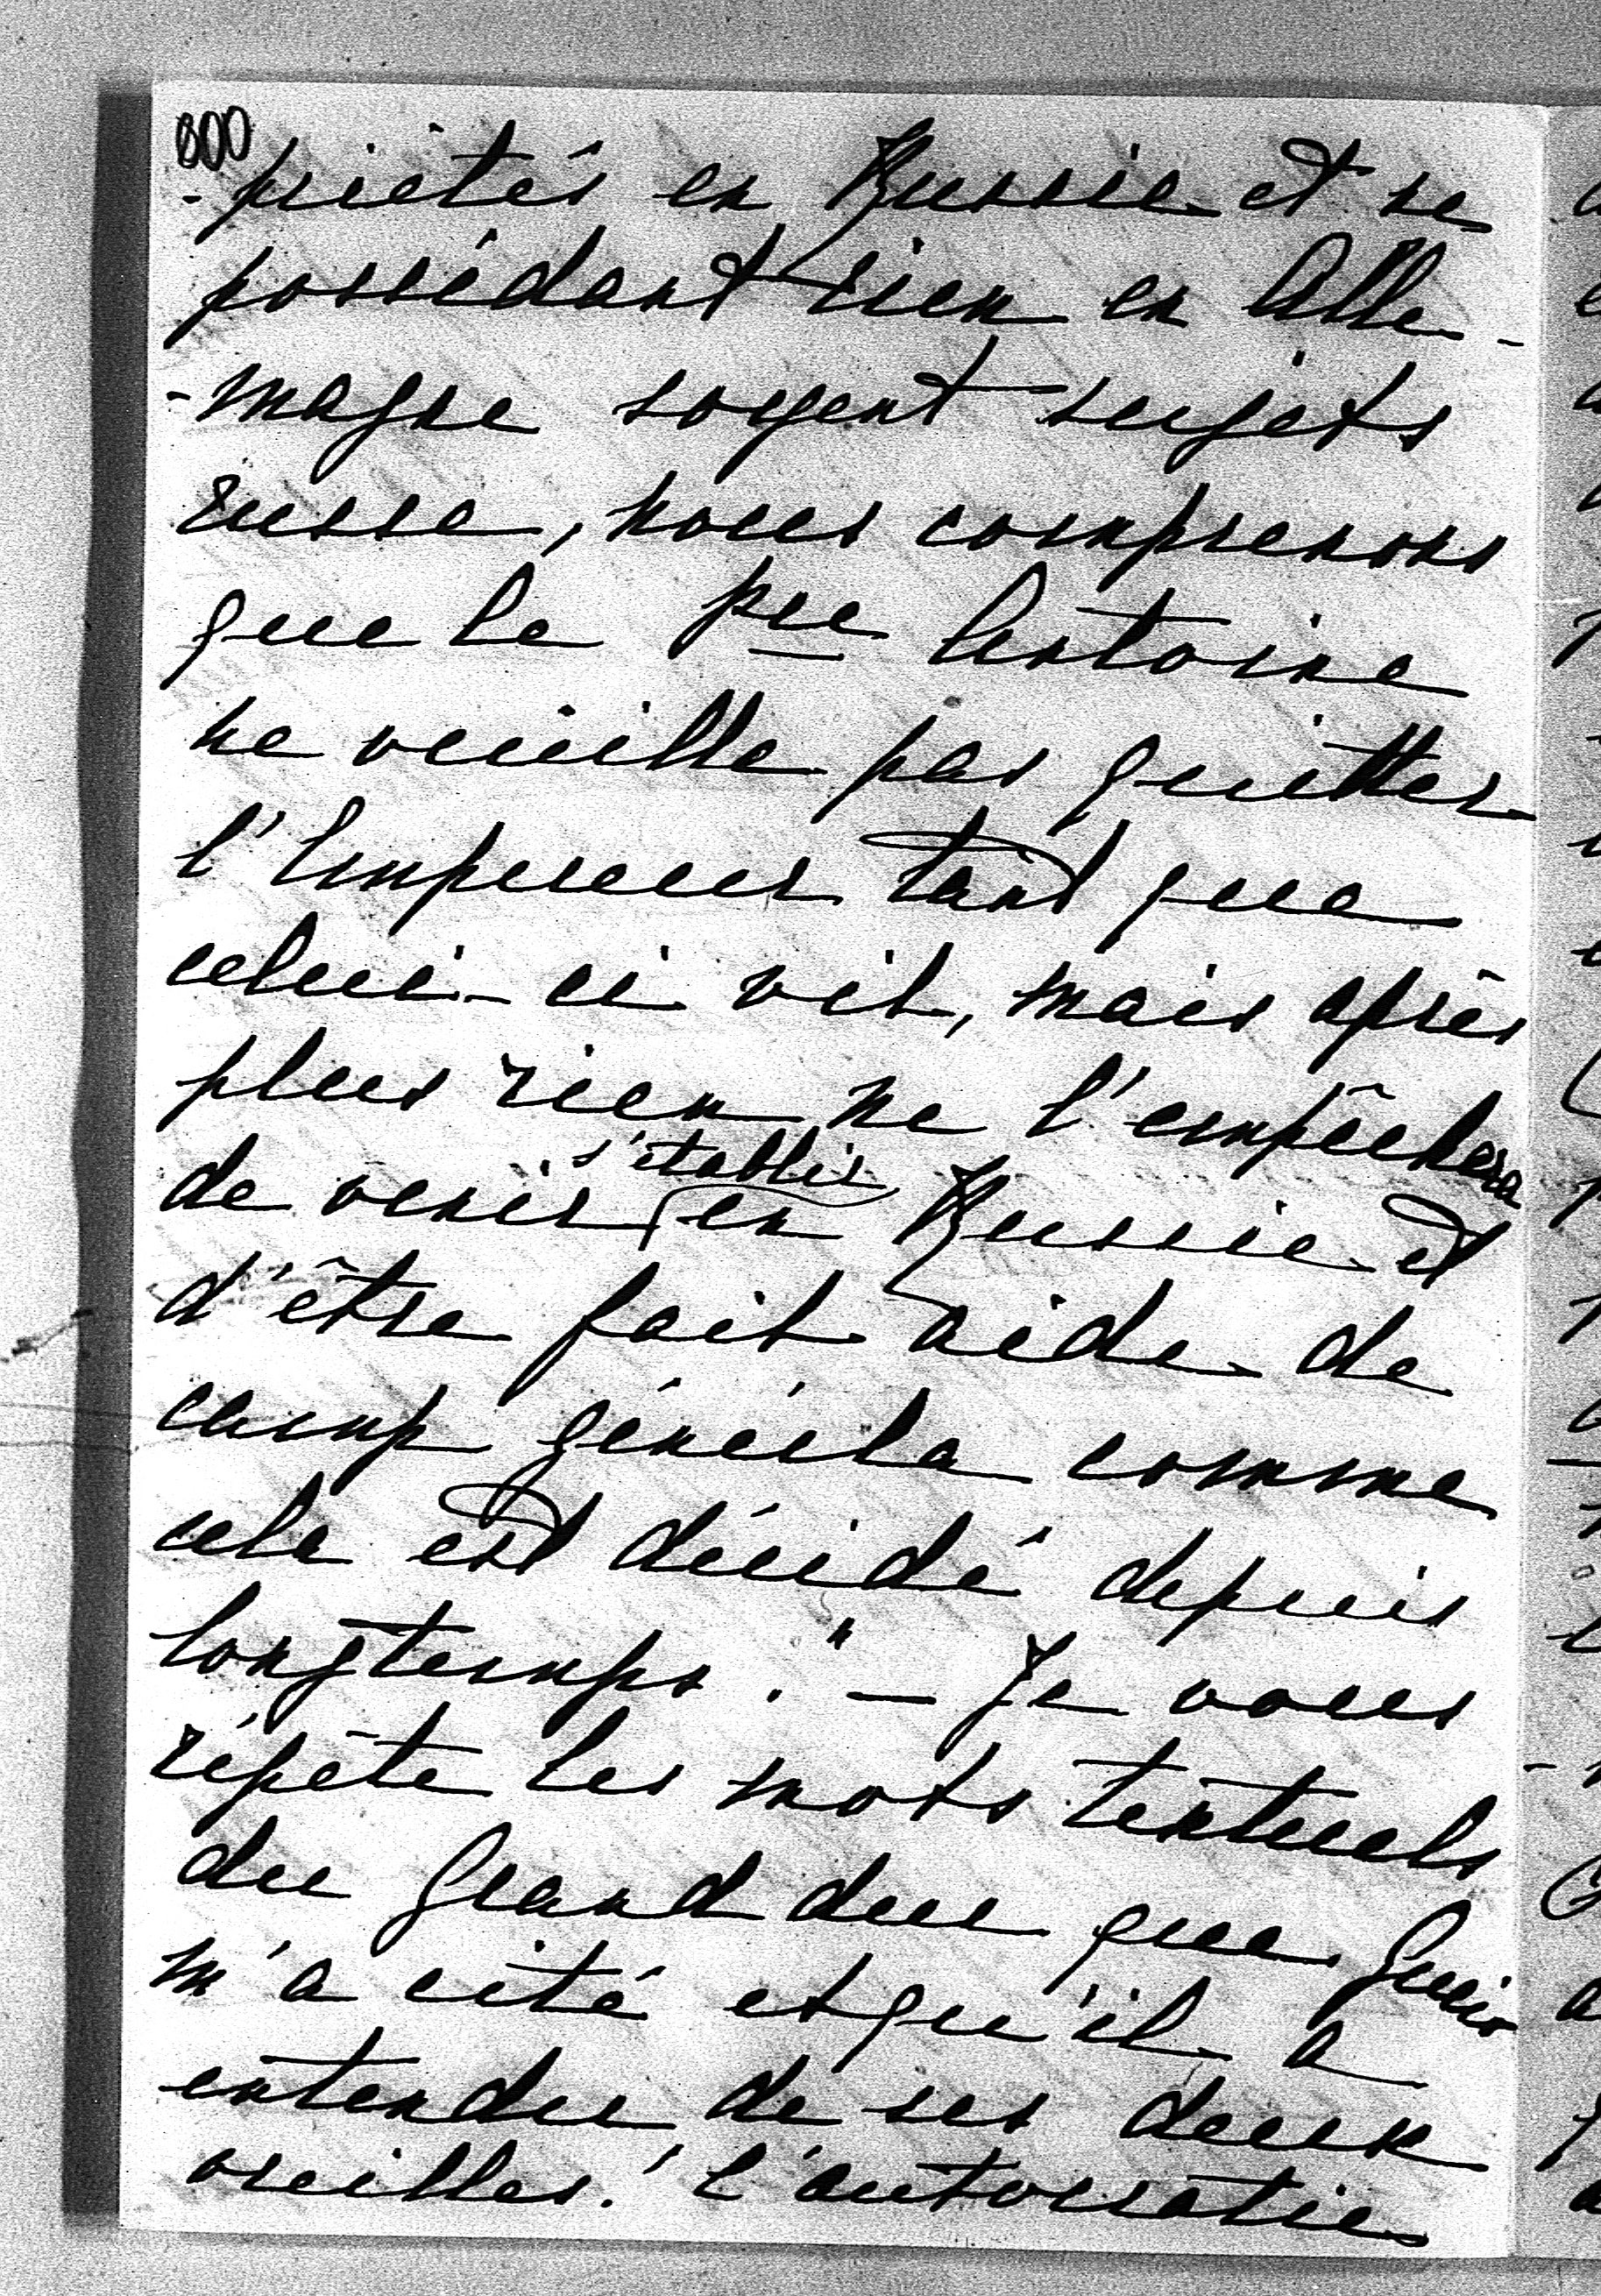 800
-priétés en Russie et ne
possédant rien en Alle-
-magne soyent sujets
russe, nous comprenons
que le Pce Antoine
ne veuille pas quitter
l'Empereur tant que
celui-ci vit, mais après
plus rien ne l'empêchera
de venir s'établir en Russie et
d'être fait aide de
camp général comme
cela est décidé depuis
longtemps." — Je vous
répète les mots textuels
du Grand duc que
m'a cité et qu'il a
entendu de ses deux
oreilles! L'autocratie